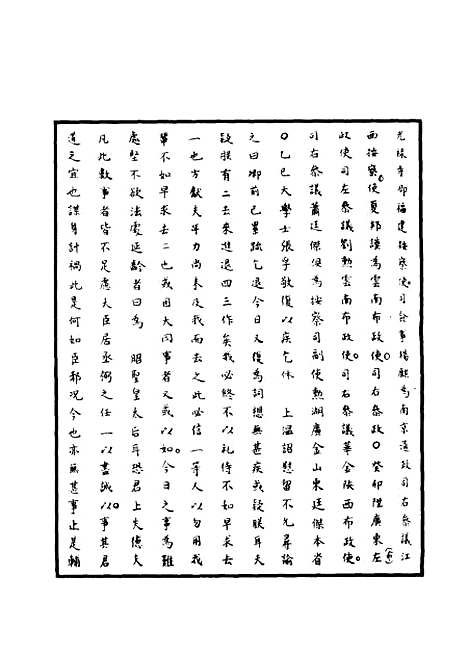 光祿寺卿福建按察使司僉事楊麒為南京通政司右參議江
西按察使夏邦謨為雲南布政使司右參政○癸卯陞廣東左(布)
政使司左參議劉勲雲南布政使司右參議華金陝西布政使
司右參議蕭廷傑俱為按察司副使勲湖廣金山東廷傑本省
○乙巳大學士張孚敬復以疾乞休 上溫詔慰留不允尋諭
之曰卿前已累疏乞退今日又復為詞想無甚疾或疑朕耳夫
疑朕有二去來進退四三作矣我必終不以禮待不如早求去
一也方獻夫年力尚未及我而去之此必信一等人以勿用我
輩不如早求去二也我因大同事者又或以如今日之事為難
處堅不欲法處延齡者曰為 昭聖皇太后耳恐君上夫億夫
凡此數事者皆不足慮大臣居丞弼之任一以盡誠以事其君
道之宜也謀身計禍此是何如臣邪況今也亦無甚事止是輔